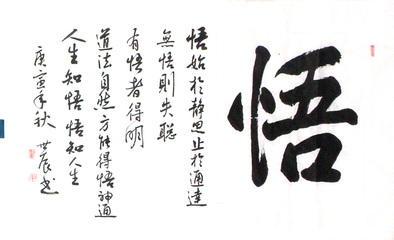 悟
悟始於静思止於通達
無悟則失聡
有悟者得明
道法自然方能得悟神通
人生知悟悟知人生
庚寅年秋 世辰书